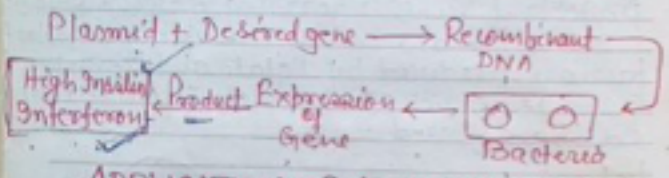 Plasmid + Desired gene → Recombinant
DNA
High Insulin
Interferon
← Product Expression
of
Gene
←
Bacteria